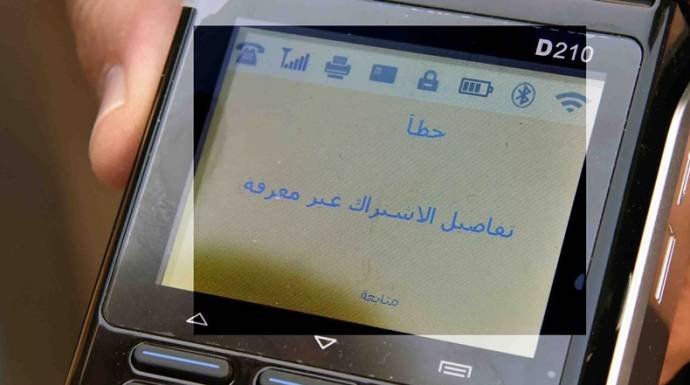 D210
خطأ
تفاصيل الاشتراك غير معرفة
متابعة